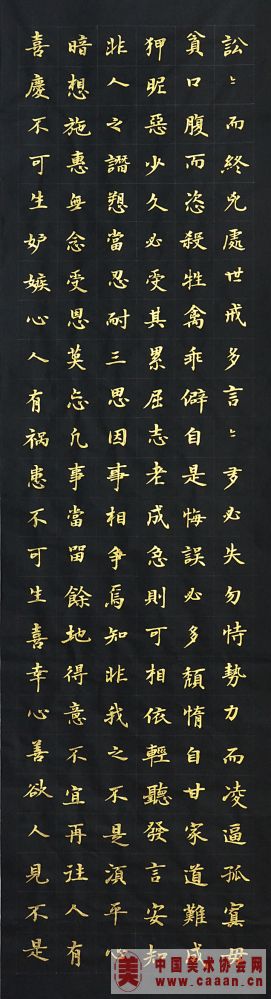 訟〻而終凶處世戒多言〻多必失勿恃勢力而凌逼孤寡毋
貪口腹而恣殺牲禽乖僻自是悔誤必多頹惰自甘家道難成
狎昵惡少久必受其累屈志老成急則可相依輕聽發言安知
非人之譖愬當忍耐三思因事相争焉知非我之不是須平心
暗想施惠無念受恩莫忘凡事當留餘地得意不宜再往人有
喜慶不可生妒嫉心人有祸患不可生喜幸心善欲人見不是
美 中国美术协会网
www.caaan.cn